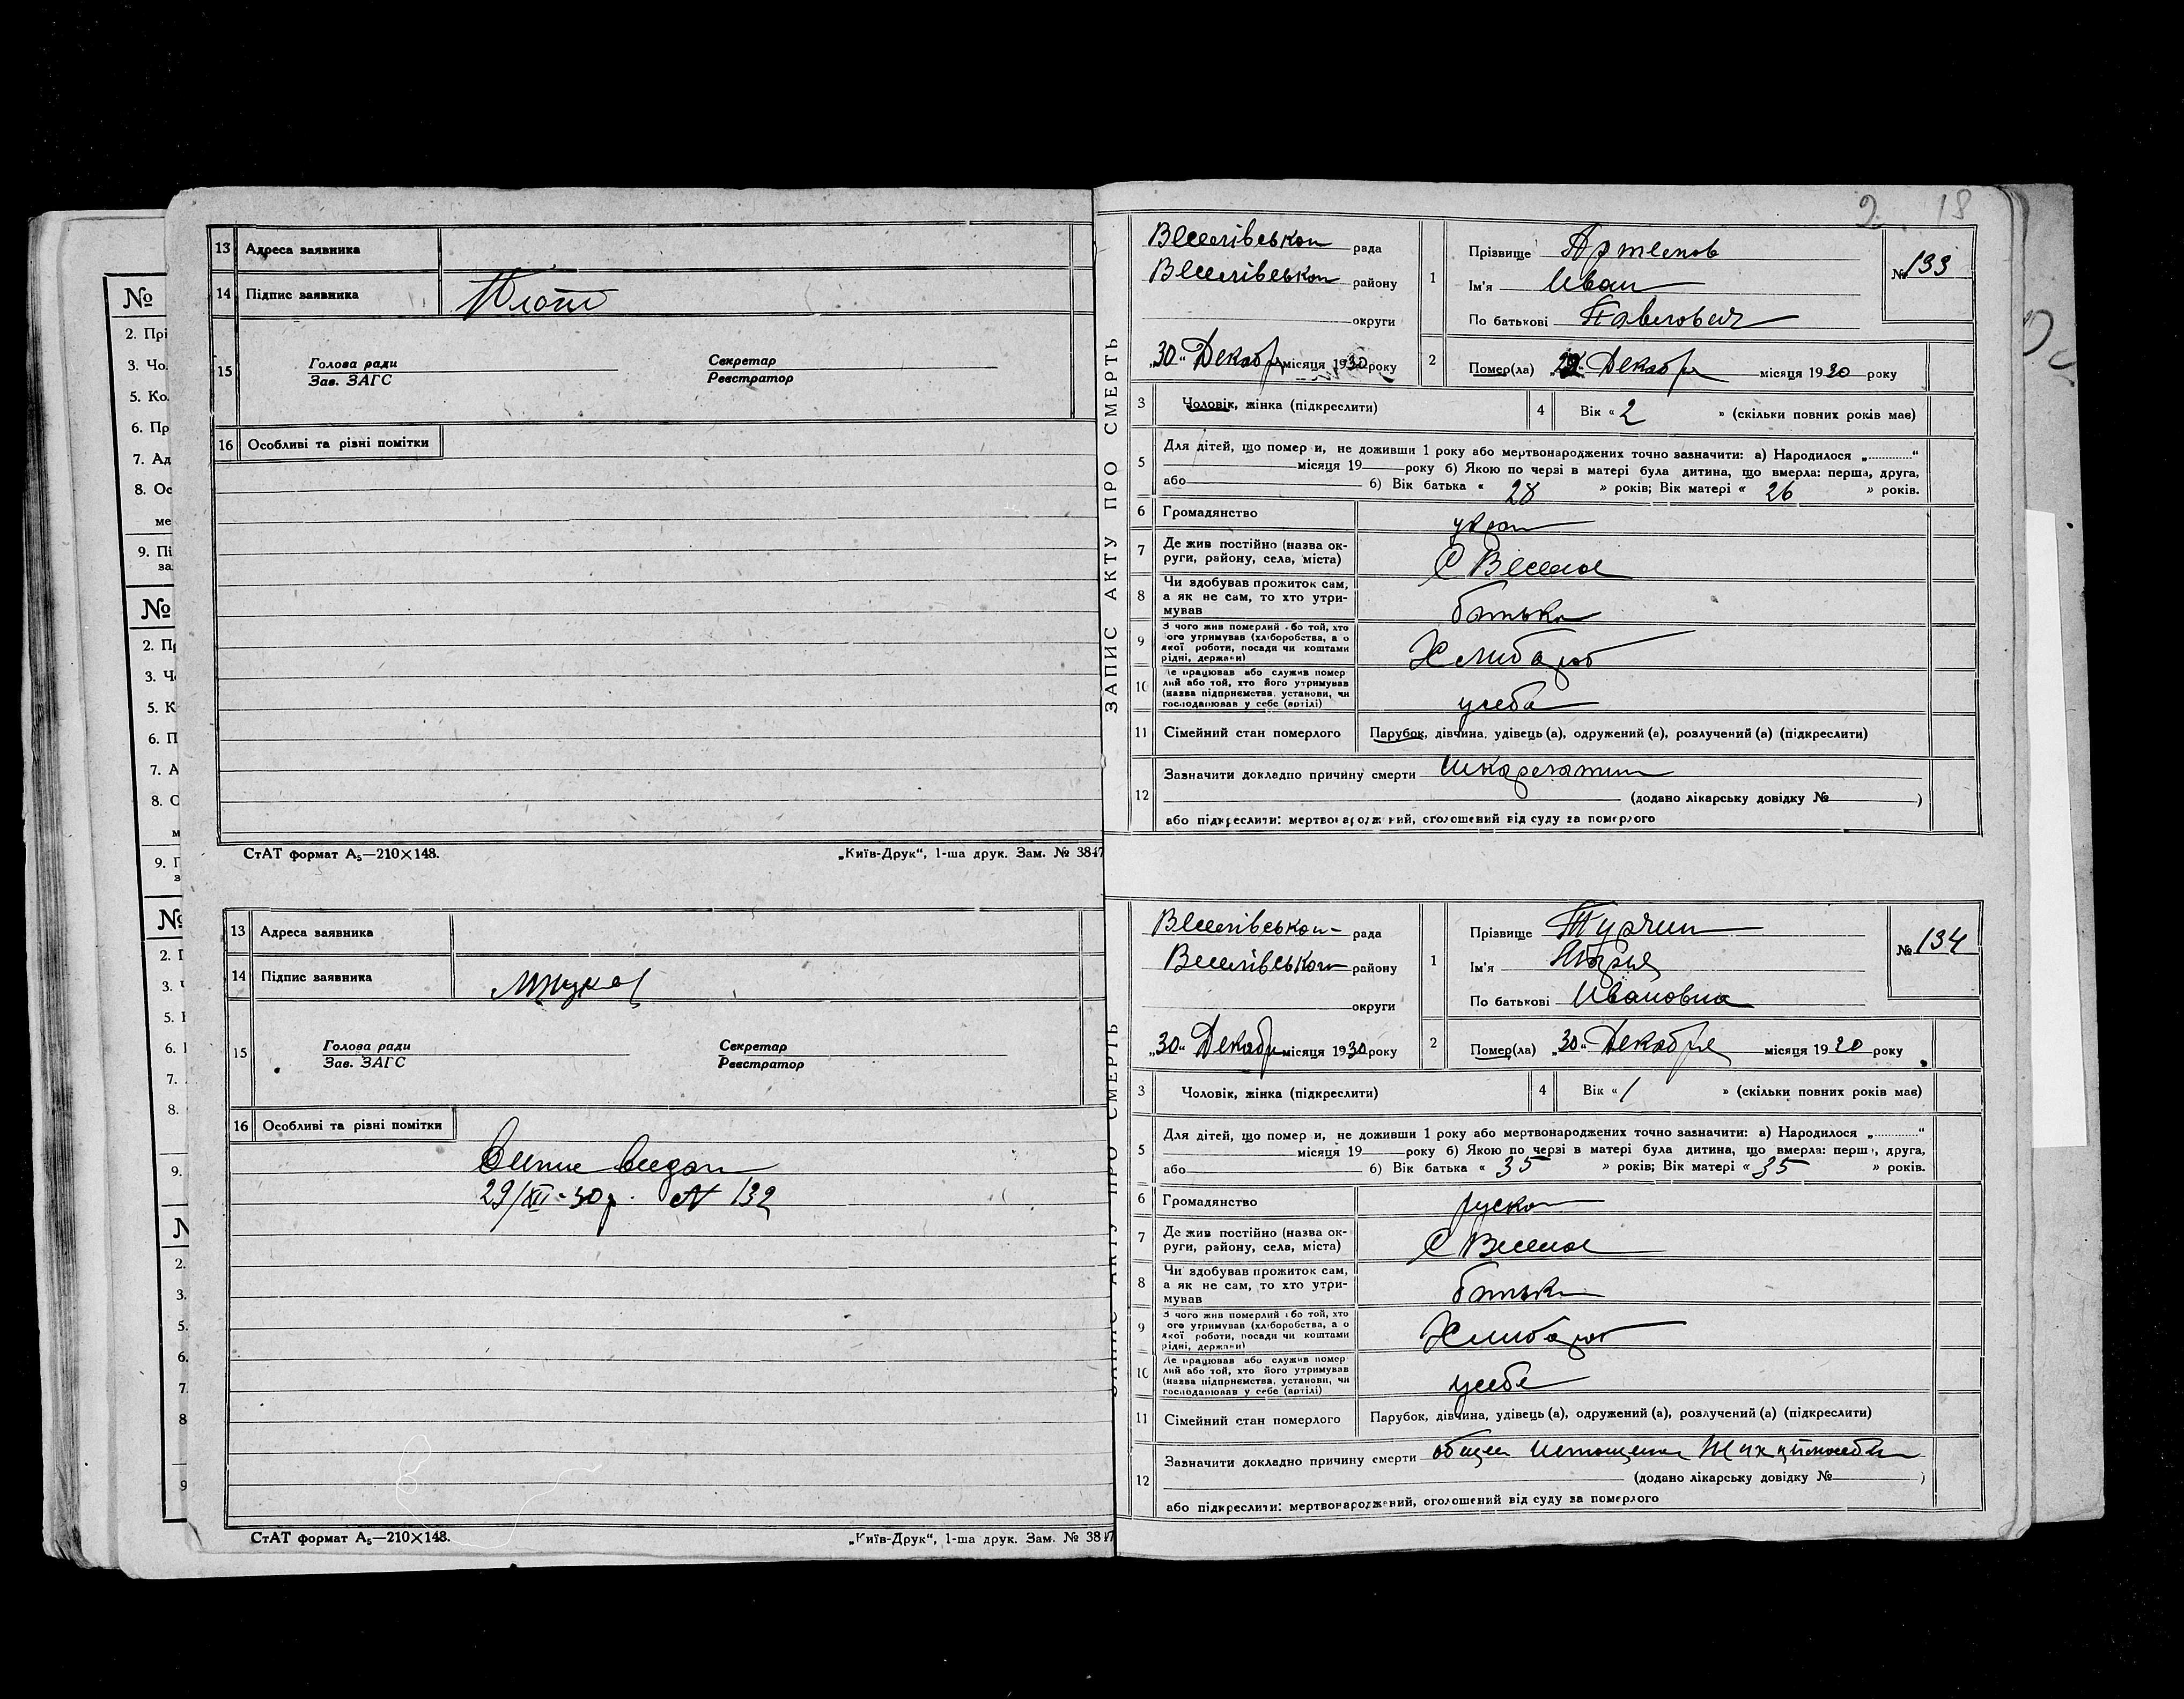 13 Адреса заявника
14 Підпис заявника
15 Голова ради Секретар
Зав. ЗАГС Реєстратор
16 Особливі та різні помітки
СтАТ формат А₅—210×148. „Київ-Друк“, 1-ша друк. Зам. № 3847
13 Адреса заявника
14 Підпис заявника
15 Голова ради Секретар
Зав. ЗАГС Реєстратор
16 Особливі та різні помітки
29/XII-30р. N 132
СтАТ формат А₅—210×148. „Київ-Друк“, 1-ша друк. Зам. № 3847
№
2. Прі
3. Чо
5. Ко
6. Пр
7. Ад
8. Ос
ме
9. Пі
за
№
2 18
ЗАПИС АКТУ ПРО СМЕРТЬ
Веселівської рада
Веселівської району
округи
„30“ Декабр місяця 1930 року
1 Прізвище Артемов
Ім'я Иван
По батькові Павлович
№ 133
2 Помер(ла) Декабр місяця 1930 року
3 Чоловік, жінка (підкреслити)
4 Вік « 2 » (скільки повних років має)
5 Для дітей, що помер и, не доживши 1 року або мертвонароджених точно зазначити: а) Народилося „............“
місяця 19 року б) Якою по черзі в матері була дитина, що вмерла: перша, друга,
або б) Вік батька « 28 » років; Вік матері « 26 » років.
6 Громадянство укр
7 Де жив постійно (назва ок-
руги, району, села, міста) С Веселое
8 Чи здобував прожиток сам,
а як не сам, то хто утри-
мував батько
9 З чого жив померлий або той, хто
ого утримував (хліборобства, а о
якої роботи, посади чи коштами
рідні, держави) Хлибароб
10 Де працював або служив помер
лий або той, хто його утримував
(назва підприємства, установи, чи
господарював у себе (артілі) усебе
11 Сімейний стан померлого Парубок, дівчина, удівець (а), одружений (а), розлучений (а) (підкреслити)
12 Зазначити докладно причину смерти шкарлатин
(додано лікарську довідку № )
або підкреслити: мертвонароджений, оголошений від суду за померлого
ЗАПИС АКТУ ПРО СМЕРТЬ
Веселівської рада
Веселівської району
округи
„30“ Декабр місяця 1930 року
1 Прізвище Турчин
Ім'я Мария
По батькові Ивановна
№ 134
2 Помер(ла) „30“ Декабря місяця 1930 року
3 Чоловік, жінка (підкреслити)
4 Вік « 1 » (скільки повних років має)
5 Для дітей, що помер и, не доживши 1 року або мертвонароджених точно зазначити: а) Народилося „............“
місяця 19 року б) Якою по черзі в матері була дитина, що вмерла: перша, друга,
або б) Вік батька « 35 » років; Вік матері « 35 » років.
6 Громадянство руска
7 Де жив постійно (назва ок-
руги, району, села, міста) С Веселое
8 Чи здобував прожиток сам,
а як не сам, то хто утри-
мував батько
9 З чого жив померлий або той, хто
ого утримував (хліборобства, а о
якої роботи, посади чи коштами
рідні, держави) Хлибароб
10 Де працював або служив помер
лий або той, хто його утримував
(назва підприємства, установи, чи
господарював у себе (артілі) усебе
11 Сімейний стан померлого Парубок, дівчина, удівець (а), одружений (а), розлучений (а) (підкреслити)
12 Зазначити докладно причину смерти общее истощение
(додано лікарську довідку № )
або підкреслити: мертвонароджений, оголошений від суду за померлого